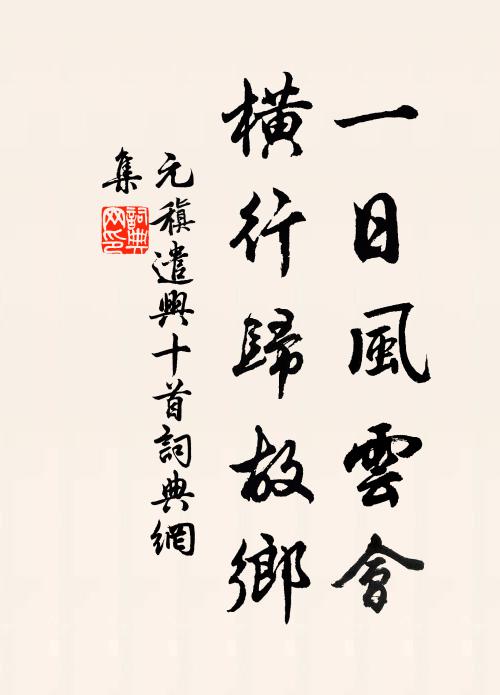 一日風雲會
橫行歸故鄉
元稹遣興十首詞典網
集
詞典
网印